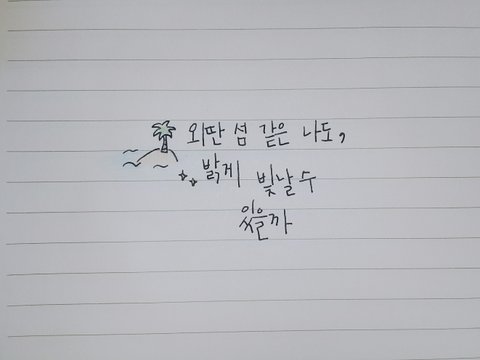 외딴 섬 같은 나도,
밝게 빛날 수
있을까